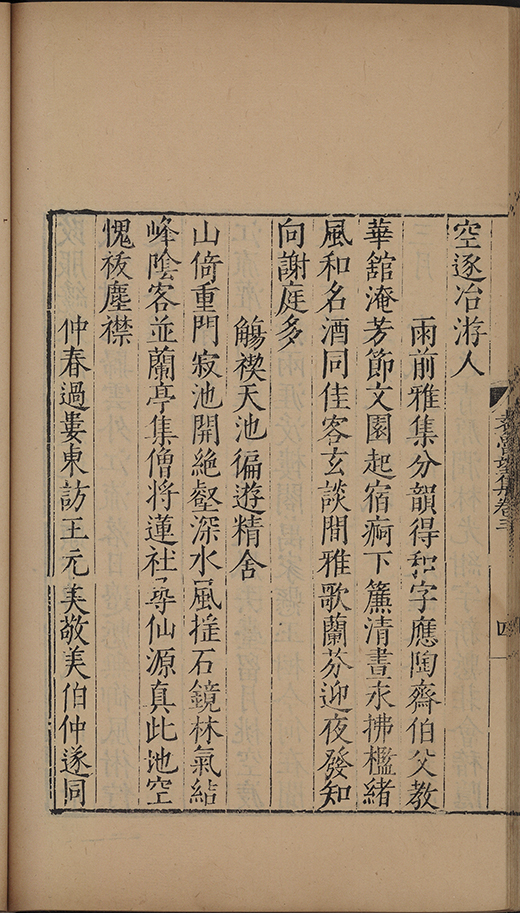 袁魯望集卷三
四
空逐冶游人
雨前雅集分韻得和字應陶齋伯父教
華舘淹芳節文園起宿痾下簾清晝永拂檻緒
風和名酒同佳客玄談間雅歌蘭芬迎夜發知
向謝庭多
觴禊天池徧遊精舍
山倚重門寂池開絶壑深水風摇石鏡林氣結
峰陰客並蘭亭集僧將蓮社尋仙源真此池空
愧祓塵襟
仲春過婁東訪王元美敬美伯仲遂同